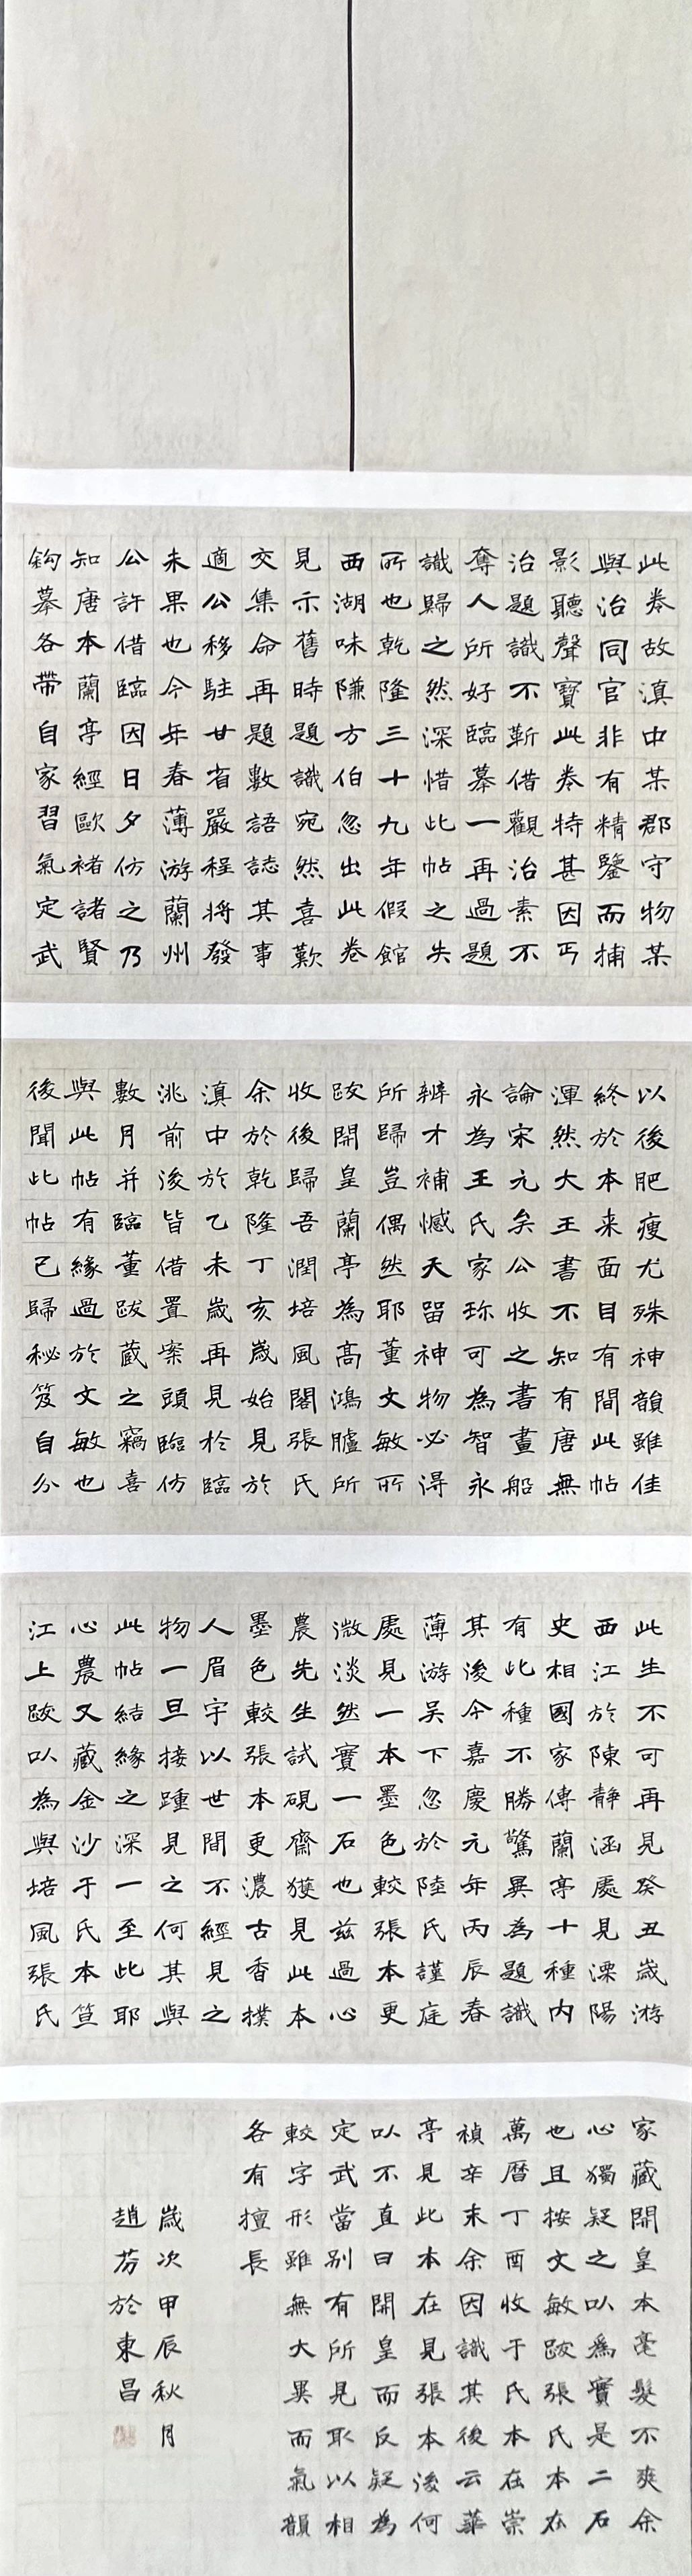 此卷故滇中某郡守物某
與治同官非有精鑒而捕
影聽聲寶此卷特甚因丐
治題識不靳借觀治素不
奪人所好臨摹一再過題
識歸之然深惜此帖之失
所也乾隆三十九年假館
西湖味隒方伯忽出此卷
見示舊時題識宛然喜歎
交集命再題數語誌其事
適公移駐甘省嚴程將發
未果也今年春薄游蘭州
公許借臨因日夕仿之乃
知唐本蘭亭經歐褚諸賢
鈎摹各帶自家習氣定武
以後肥瘦尤殊神韻雖佳
終於本来面目有間此帖
渾然大王書不知有唐無
論宋元矣公收之書畫船
永為王氏家珎可為智永
辨才補憾天留神物必得
所歸豈偶然耶董文敏所
跋開皇蘭亭為高鴻臚所
收後歸吾潤培風閣張氏
余於乾隆丁亥歲始見於
滇中於乙未歲再見於臨
洮前後皆借置案頭臨仿
數月并臨董跋蔵之竊喜
與此帖有緣過於文敏也
後聞此帖已歸秘笈自分
此生不可再見癸丑歲游
西江於陳静涵處見溧陽
史相國家傳蘭亭十種内
有此種不勝驚異為題識
其後今嘉慶元年丙辰春
薄游吴下忽於陸氏謹庭
處見一本墨色較張本更
微淡然實一石也兹過心
農先生試硯齋獲見此本
墨色較張本更濃古香撲
人眉宇以世間不經見之
物一旦接踵見之何其與
此帖結緣之深一至此耶
心農又藏金沙于氏本笪
江上跋以為與培風張氏
家藏開皇本毫髮不爽余
心獨疑之以為實是二石
也且按文敏跋張氏本在
萬曆丁酉收于氏本在崇
禎辛未余因識其後云華
亭見此本在見張本後何
以不直曰開皇而反疑為
定武當别有所見耴以相
較字形雖無大異而氣韻
各有擅長
歲次甲辰秋月
趙芬於東昌